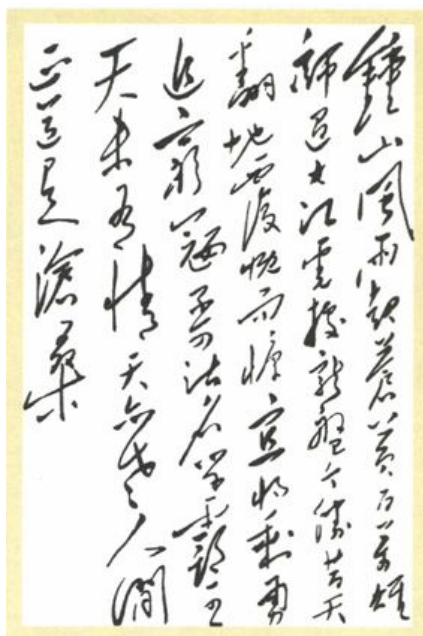 鐘山風雨起蒼黃百萬雄
師過大江虎據龍盤今勝昔天
翻地覆慨而慷宜將剩勇
追窮寇不可沽名學霸王
天未有情天亦老人間
正道是滄桑